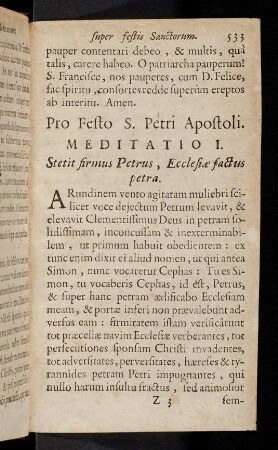 super festis Sanctorum. 533
pauper contentari debeo, & multis, quà
talis, carere habeo. O patriarcha pauperum!
S. Francisce, nos pauperes, cum D. Felice,
fac spiritu, consortes redde superûm ereptos
ab interitu. Amen.
Pro Festo S. Petri Apostoli.
MEDITATIO I.
Stetit firmus Petrus, Ecclesiæ factus
petra.
ARundinem vento agitatam muliebri sci-
licet voce dejectum Petrum levavit, &
elevavit Clementissimus Deus in petram so-
lidissimam, inconcussam & inexterminabi-
lem, ut primum habuit obedientem: ex
tunc enim dixit ei aliud nomen, ut qui antea
Simon, nunc vocaretur Cephas: Tu es Si-
mon, tu vocaberis Cephas, id est, Petrus,
& super hanc petram ædificabo Ecclesiam
meam, & portæ inferi non prævalebunt ad-
versus eam: firmitatem istam verificârunt
tot præcellæ navim Ecclesiæ verberantes, tot
persecutiones sponsam Christi invadentes,
tot adversitates, perversitates, hæreses & ty-
rannides petram Petri impugnantes, qui
nullo harum insultu fractus, sed animosior
Z 3 sem-